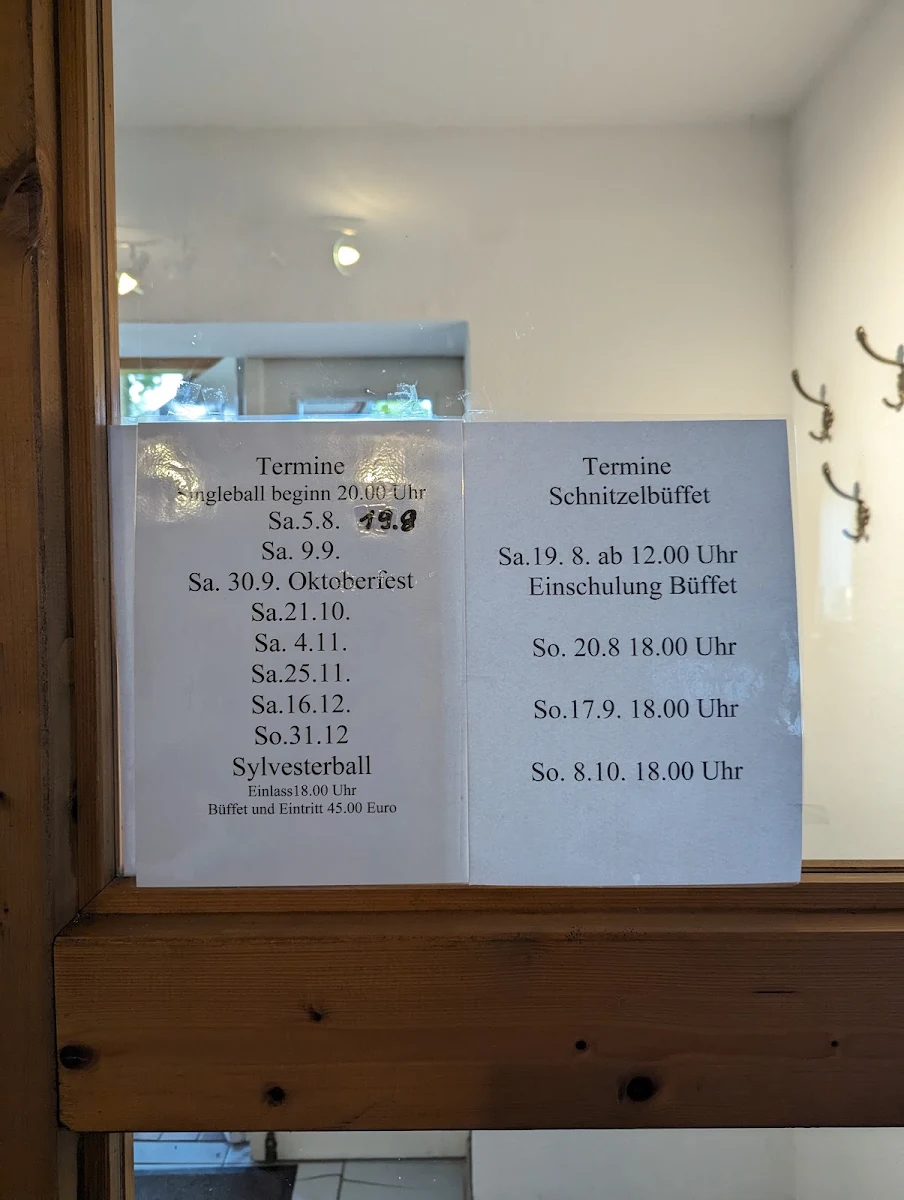 Termine
Singleball beginn 20.00 Uhr
Sa.5.8. 19.8
Sa. 9.9.
Sa. 30.9. Oktoberfest
Sa.21.10.
Sa. 4.11.
Sa.25.11.
Sa.16.12.
So.31.12
Sylvesterball
Einlass18.00 Uhr
Büffet und Eintritt 45.00 Euro
Termine
Schnitzelbüffet
Sa.19. 8. ab 12.00 Uhr
Einschulung Büffet
So. 20.8 18.00 Uhr
So.17.9. 18.00 Uhr
So. 8.10. 18.00 Uhr